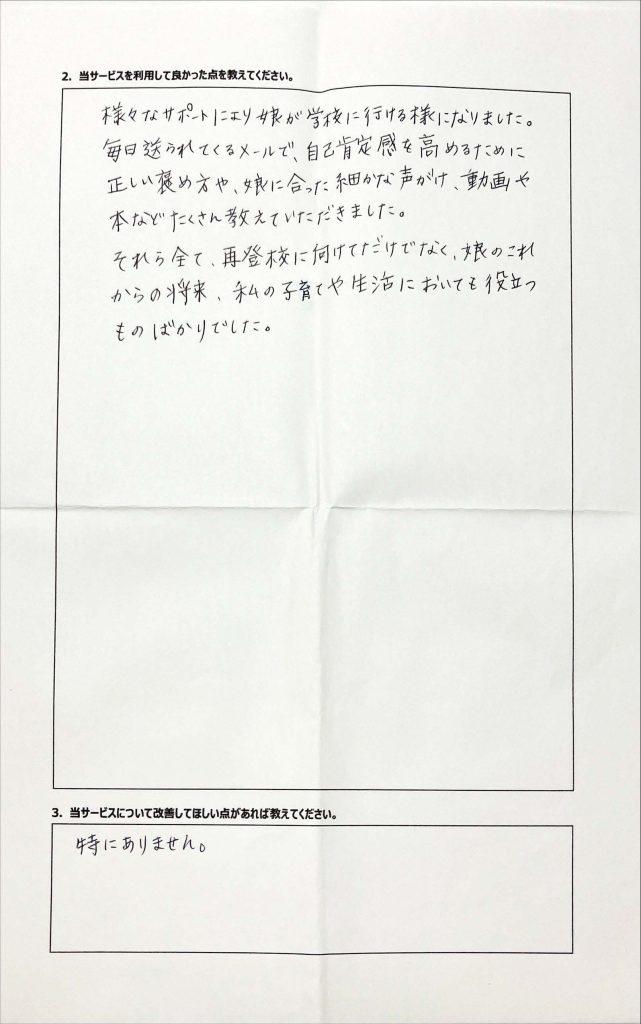 2. 当サービスを利用して良かった点を教えてください。
様々なサポートにより娘が学校に行ける様になりました。
毎日送られてくるメールで、自己肯定感を高めるために
正しい褒め方や、娘に合った細かな声がけ、動画や
本などたくさん教えていただきました。
それら全て、再登校に向けてだけでなく、娘のこれ
からの将来、私の子育てや生活においても役立つ
ものばかりでした。
3. 当サービスについて改善してほしい点があれば教えてください。
特にありません。